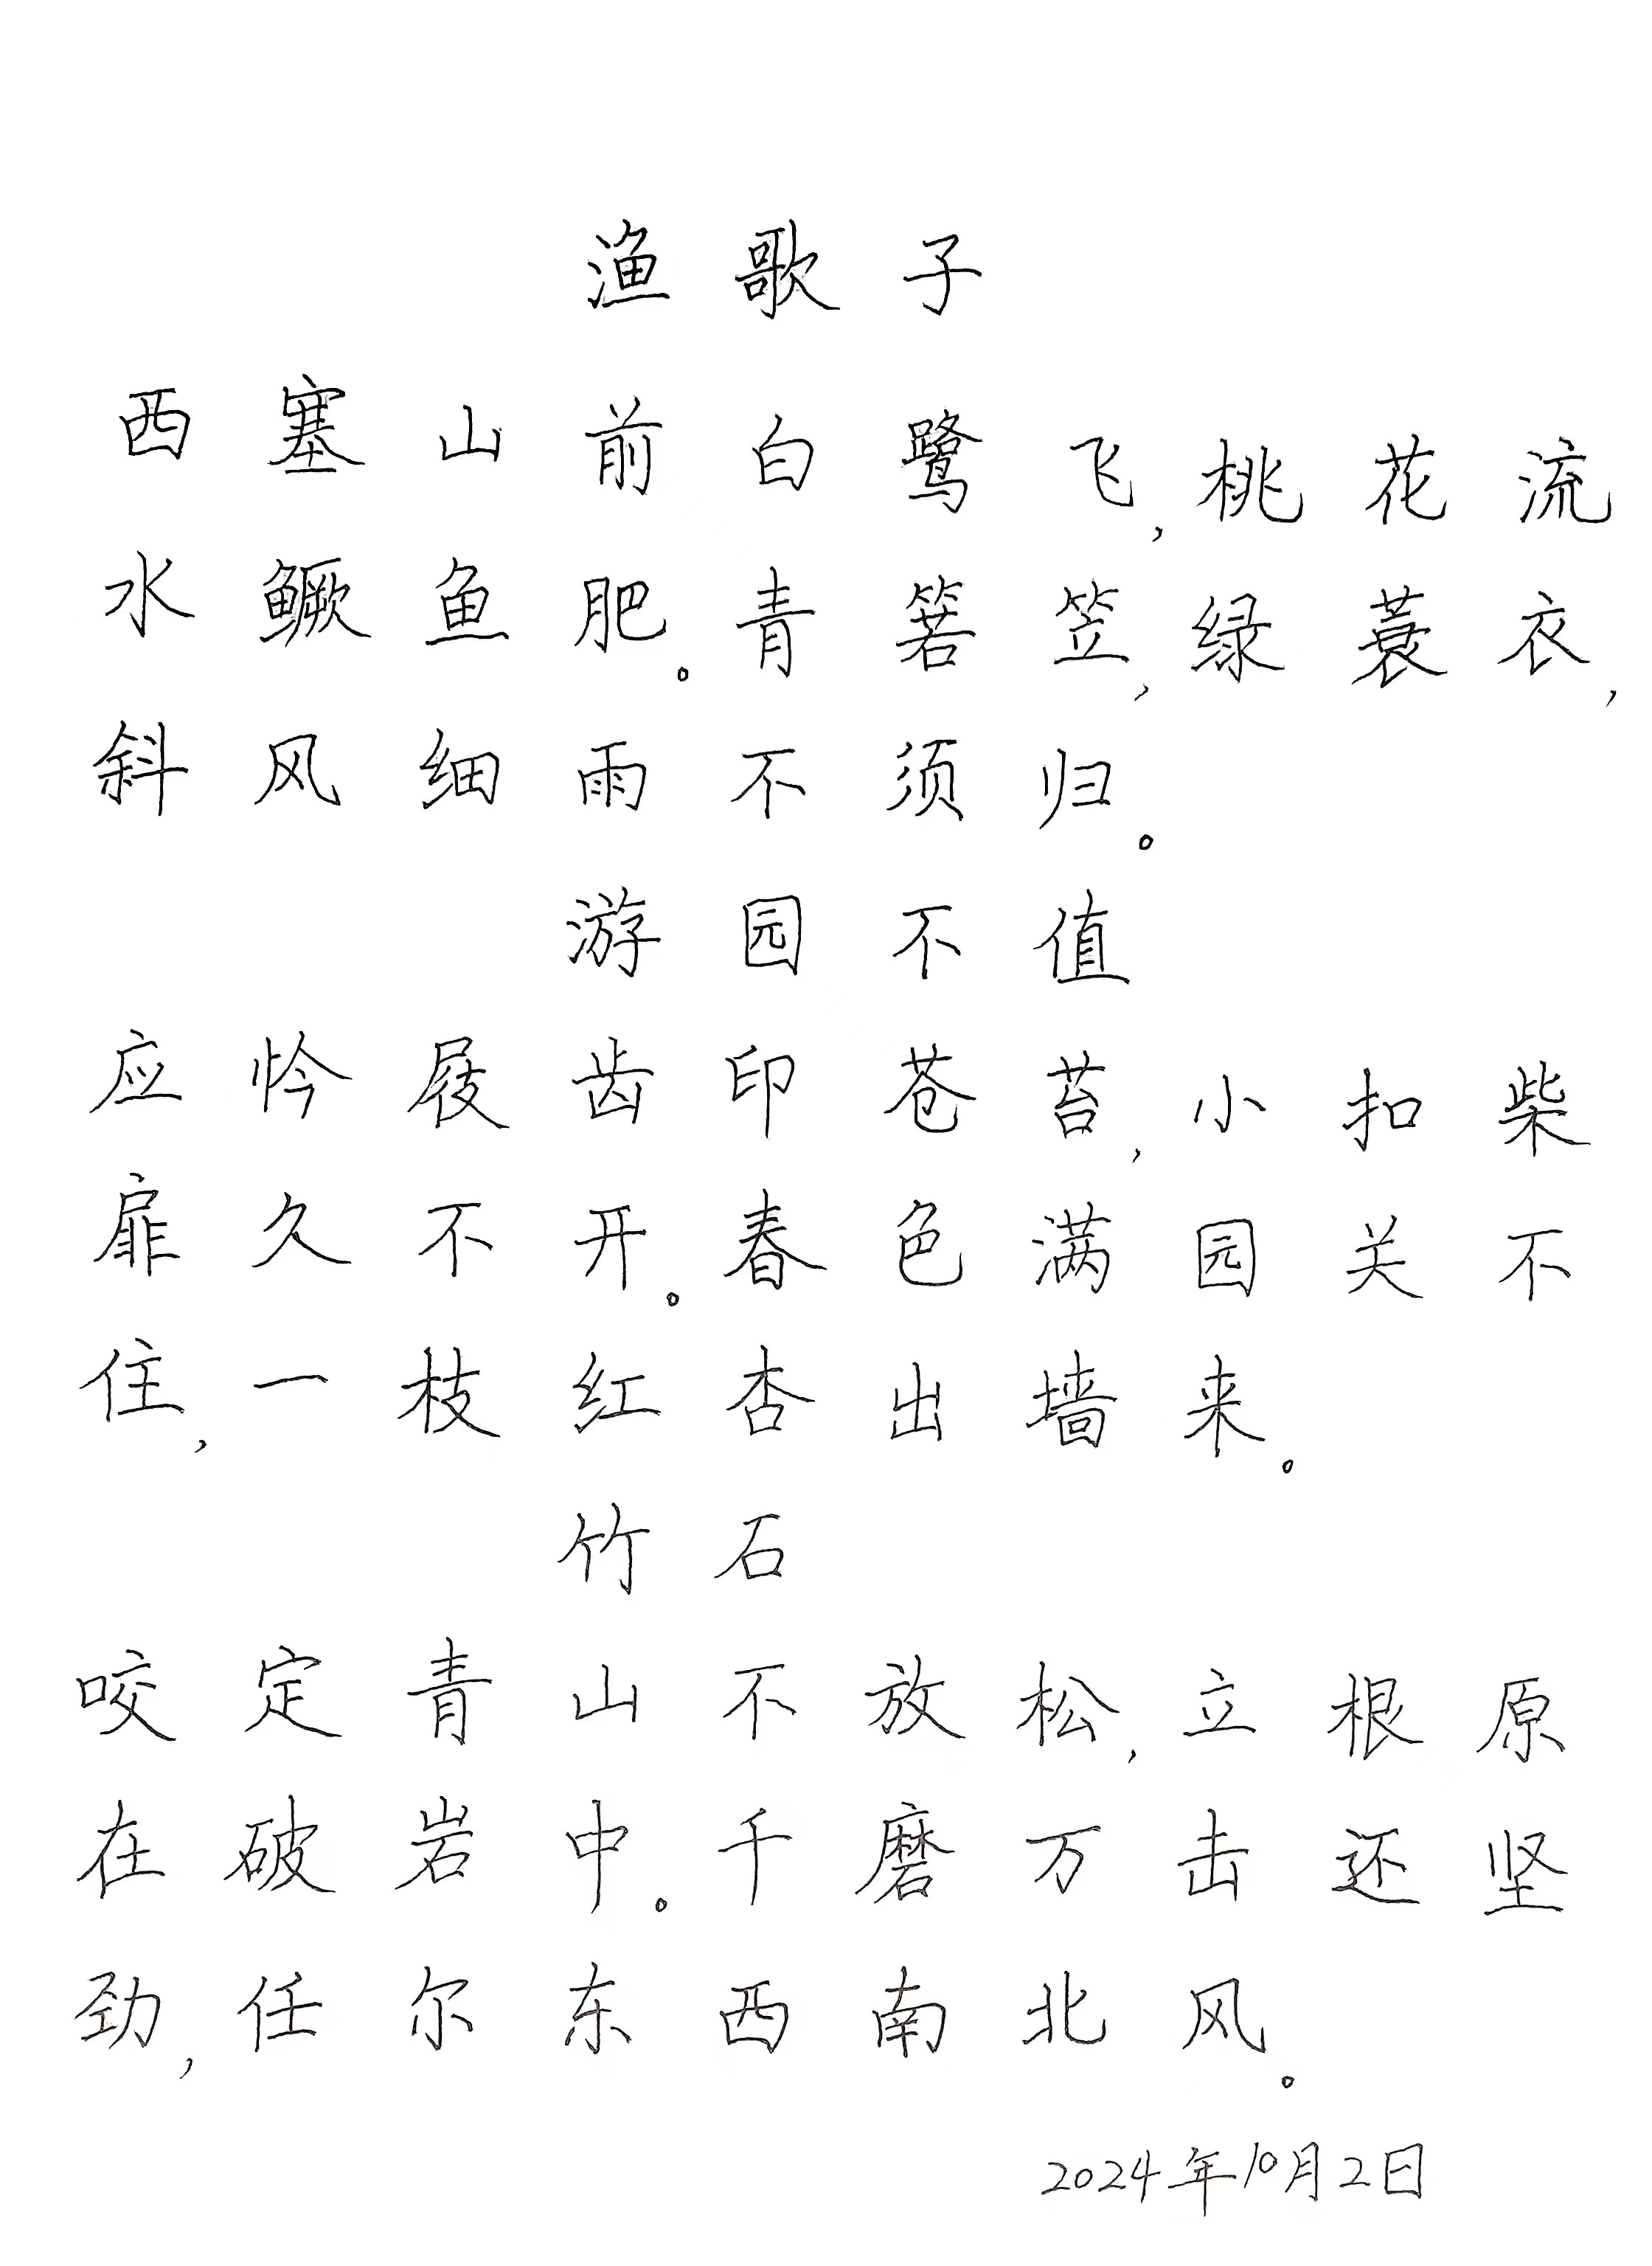 渔歌子
西塞山前白鹭飞,桃花流
水鳜鱼肥。青箬笠,绿蓑衣,
斜风细雨不须归。
游园不值
应怜屐齿印苍苔,小扣柴
扉久不开。春色满园关不
住,一枝红杏出墙来。
竹石
咬定青山不放松,立根原
在破岩中。千磨万击还坚
劲,任尔东西南北风。
2024年10月2日